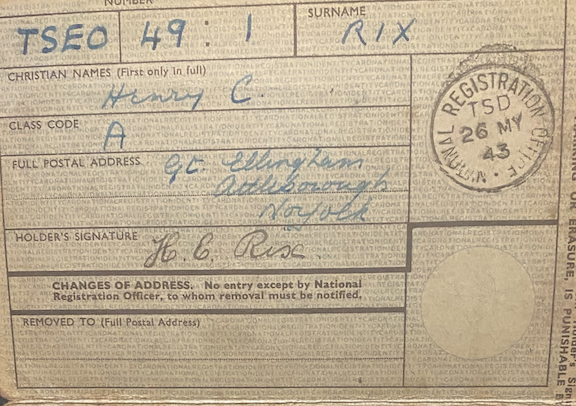 NUMBER
SURNAME
TSEO 49 : 1
RIX
CHRISTIAN NAMES (First only in full)
Henry C.
CLASS CODE
A
FULL POSTAL ADDRESS
Gt. Ellingham
Attleborough
Norfolk
HOLDER'S SIGNATURE
H. C. Rix
NATIONAL REGISTRATION OFFICE
TSD
26 MY
43
CHANGES OF ADDRESS. No entry except by National
Registration Officer, to whom removal must be notified.
REMOVED TO (Full Postal Address)
OR ERASURE, IS PUNISHABLE